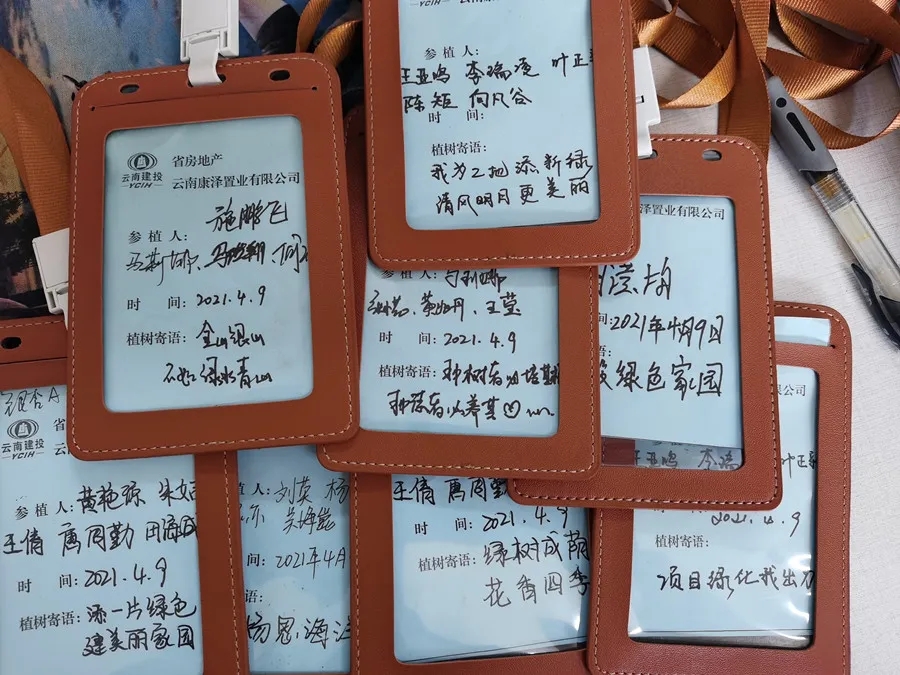 云南建投
YCIH
省房地产
云南康泽置业有限公司
施鹏飞
参 植 人:
马斯娜、
时 间: 2021.4.9
植树寄语: 金山银山
不如绿水青山
YCIH
参 植 人:
王亚鸣 李瑞凌 叶正
陈矩 向凡谷
时 间:
植树寄语:
我为工地添新绿
清风明月更美丽
参 植 人:
王莹
时 间: 2021.4.9
植树寄语: 种树者必培其
种德者必养其
泽置业有限公司
间: 2021年4月9日
语:
绿色家园
王亚鸣 李瑞
云南建投
YCIH
省
云
参 植 人: 黄艳琼 朱
王倩 唐周勤 田海
时 间: 2021.4.9
植树寄语: 添一片绿色
建美丽家园
植 人: 刘英 杨
间: 2021年4月
语:
王倩 唐周勤
时 间: 2021.4.9
植树寄语: 绿树成荫
花香四季
公司
叶正
2021.4.9
植树寄语:
项目绿化我出力